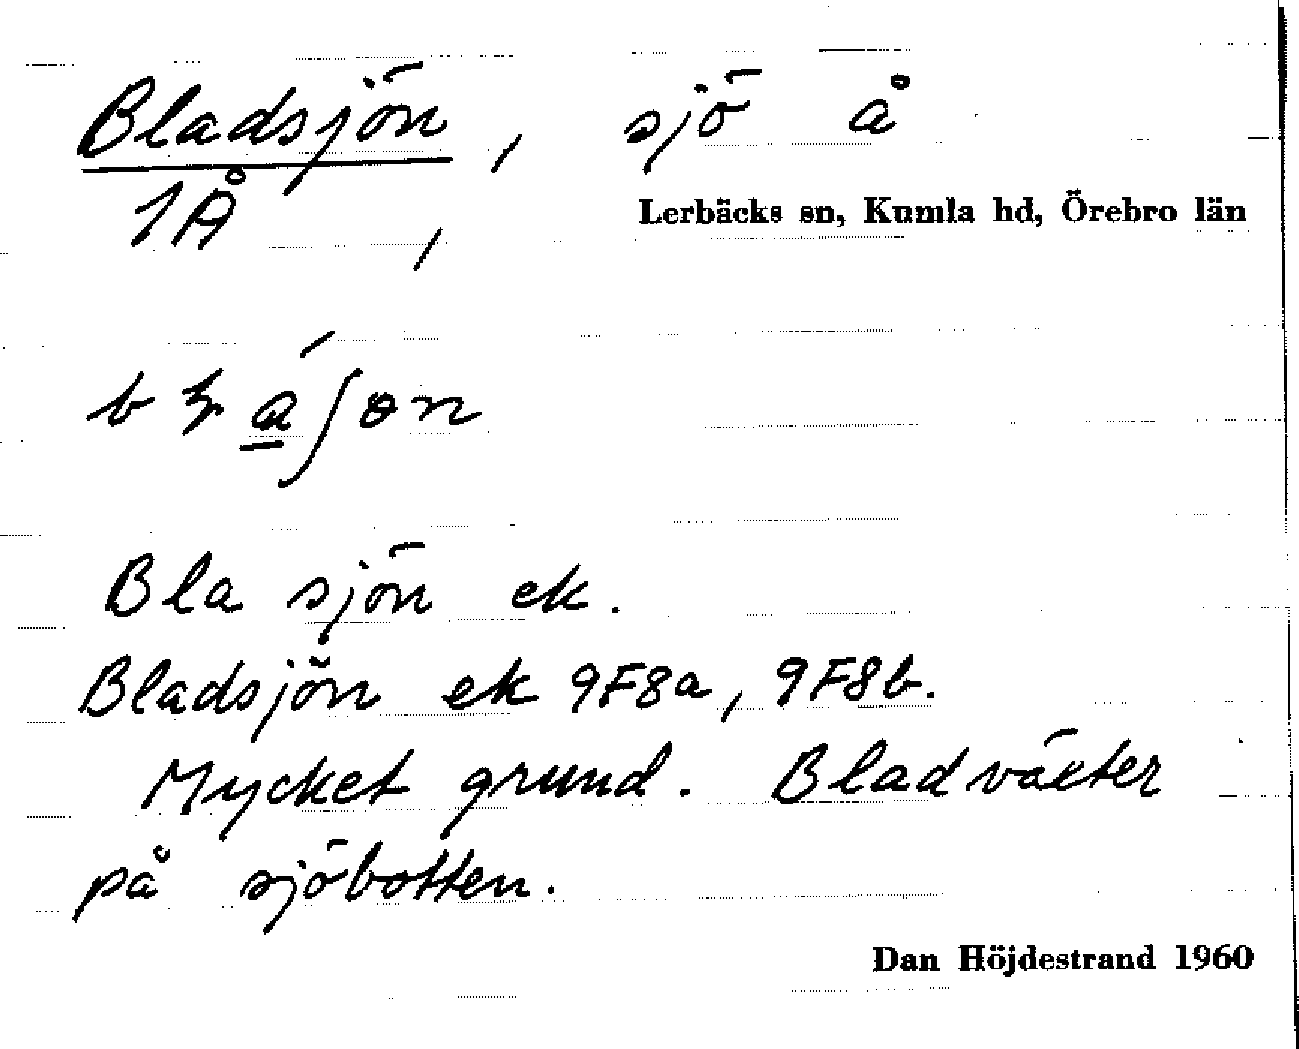 Bladsjön, sjö å
1Å,
Lerbäcks sn, Kumla hd, Örebro län
Bla sjön ek.
Bladsjön ek 9F8a, 9F8b.
Mycket grund. Bladväxter
på sjöbotten.
Dan Höjdestrand 1960